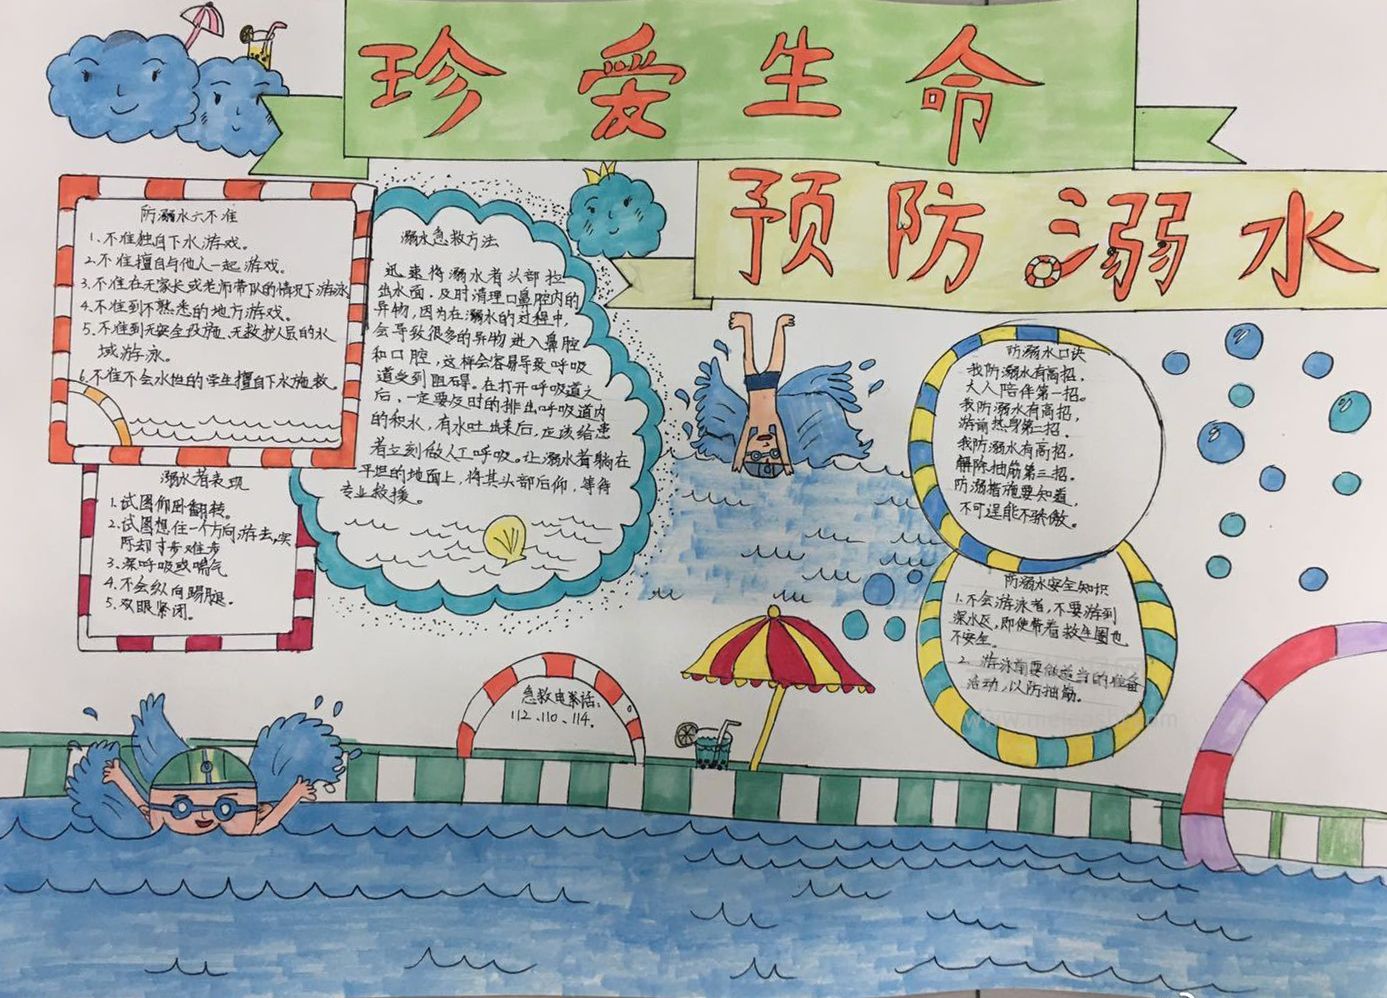 珍爱生命
预防溺水
防溺水六不准
1.不准独自下水游戏。
2.不准擅自与他人一起游戏。
3.不准在无家长或老师带队的情况下游泳
4.不准到不熟悉的地方游戏。
5.不准到无安全设施、无救护人员的水
域游泳。
6.不准不会水性的学生擅自下水施救。
溺水急救方法
迅速将溺水者头部拉
出水面,及时清理口鼻腔内的
异物,因为在溺水的过程中,
会导致很多的异物进入鼻腔
和口腔,这样会容易导致呼吸
道受到阻碍。在打开呼吸道之
后,一定要及时的排出呼吸道内
的积水,有水吐出来后,应该给患
者立刻做人工呼吸。让溺水者躺在
平坦的地面上,将其头部后仰,等待
专业救援。
溺水者表现
1.试图仰卧翻转。
2.试图想往一个方向游去,实
际却寸步难步
3.深呼吸或喘气
4.不会纵向踢腿。
5.双眼紧闭。
防溺水口诀
我防溺水有高招,
大人陪伴第一招。
我防溺水有高招,
游前热身第二招.
我防溺水有高招,
解除抽筋第三招.
防溺措施要知道,
不可逞能不骄傲。
防溺水安全知识
1.不会游泳者,不要游到
深水区,即使带着救生圈也
不安全。
2.游泳前要做适当的准备
活动,以防抽筋。
急救电话:
112、110、114.